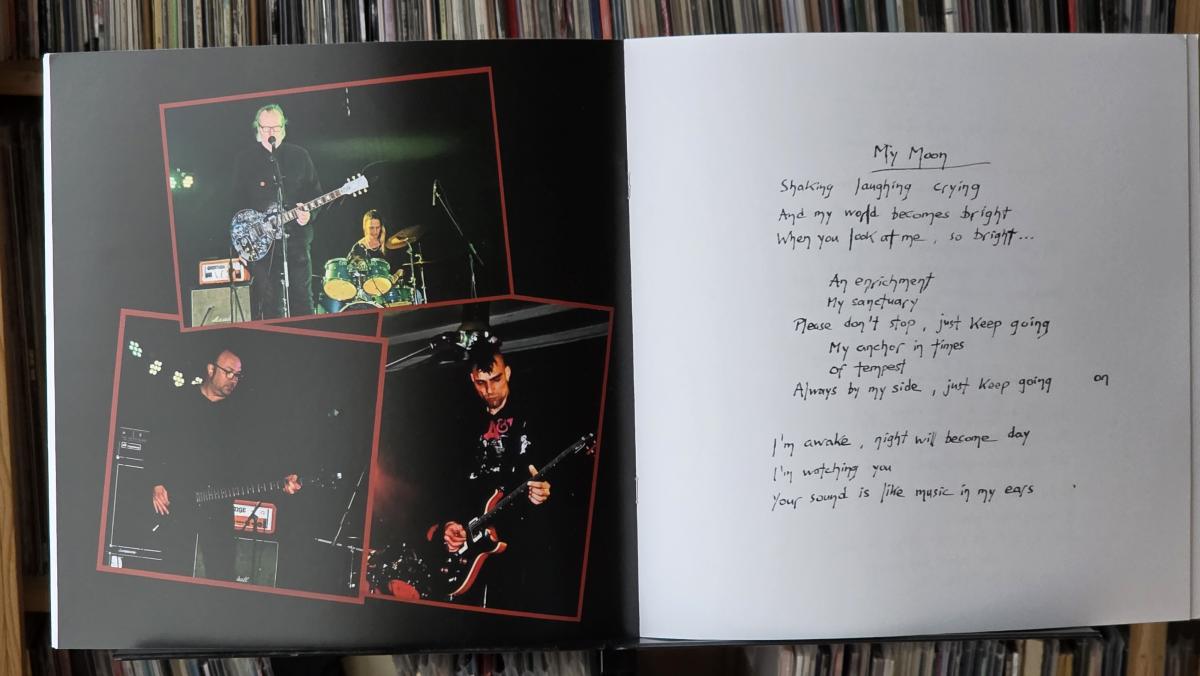 My Moon
Shaking laughing crying
And my world becomes bright
When you look at me, so bright...
An enrichment
My sanctuary
Please don't stop, just keep going
My anchor in times
of tempest
Always by my side, just keep going on
I'm awake, night will become day
I'm watching you
Your sound is like music in my ears